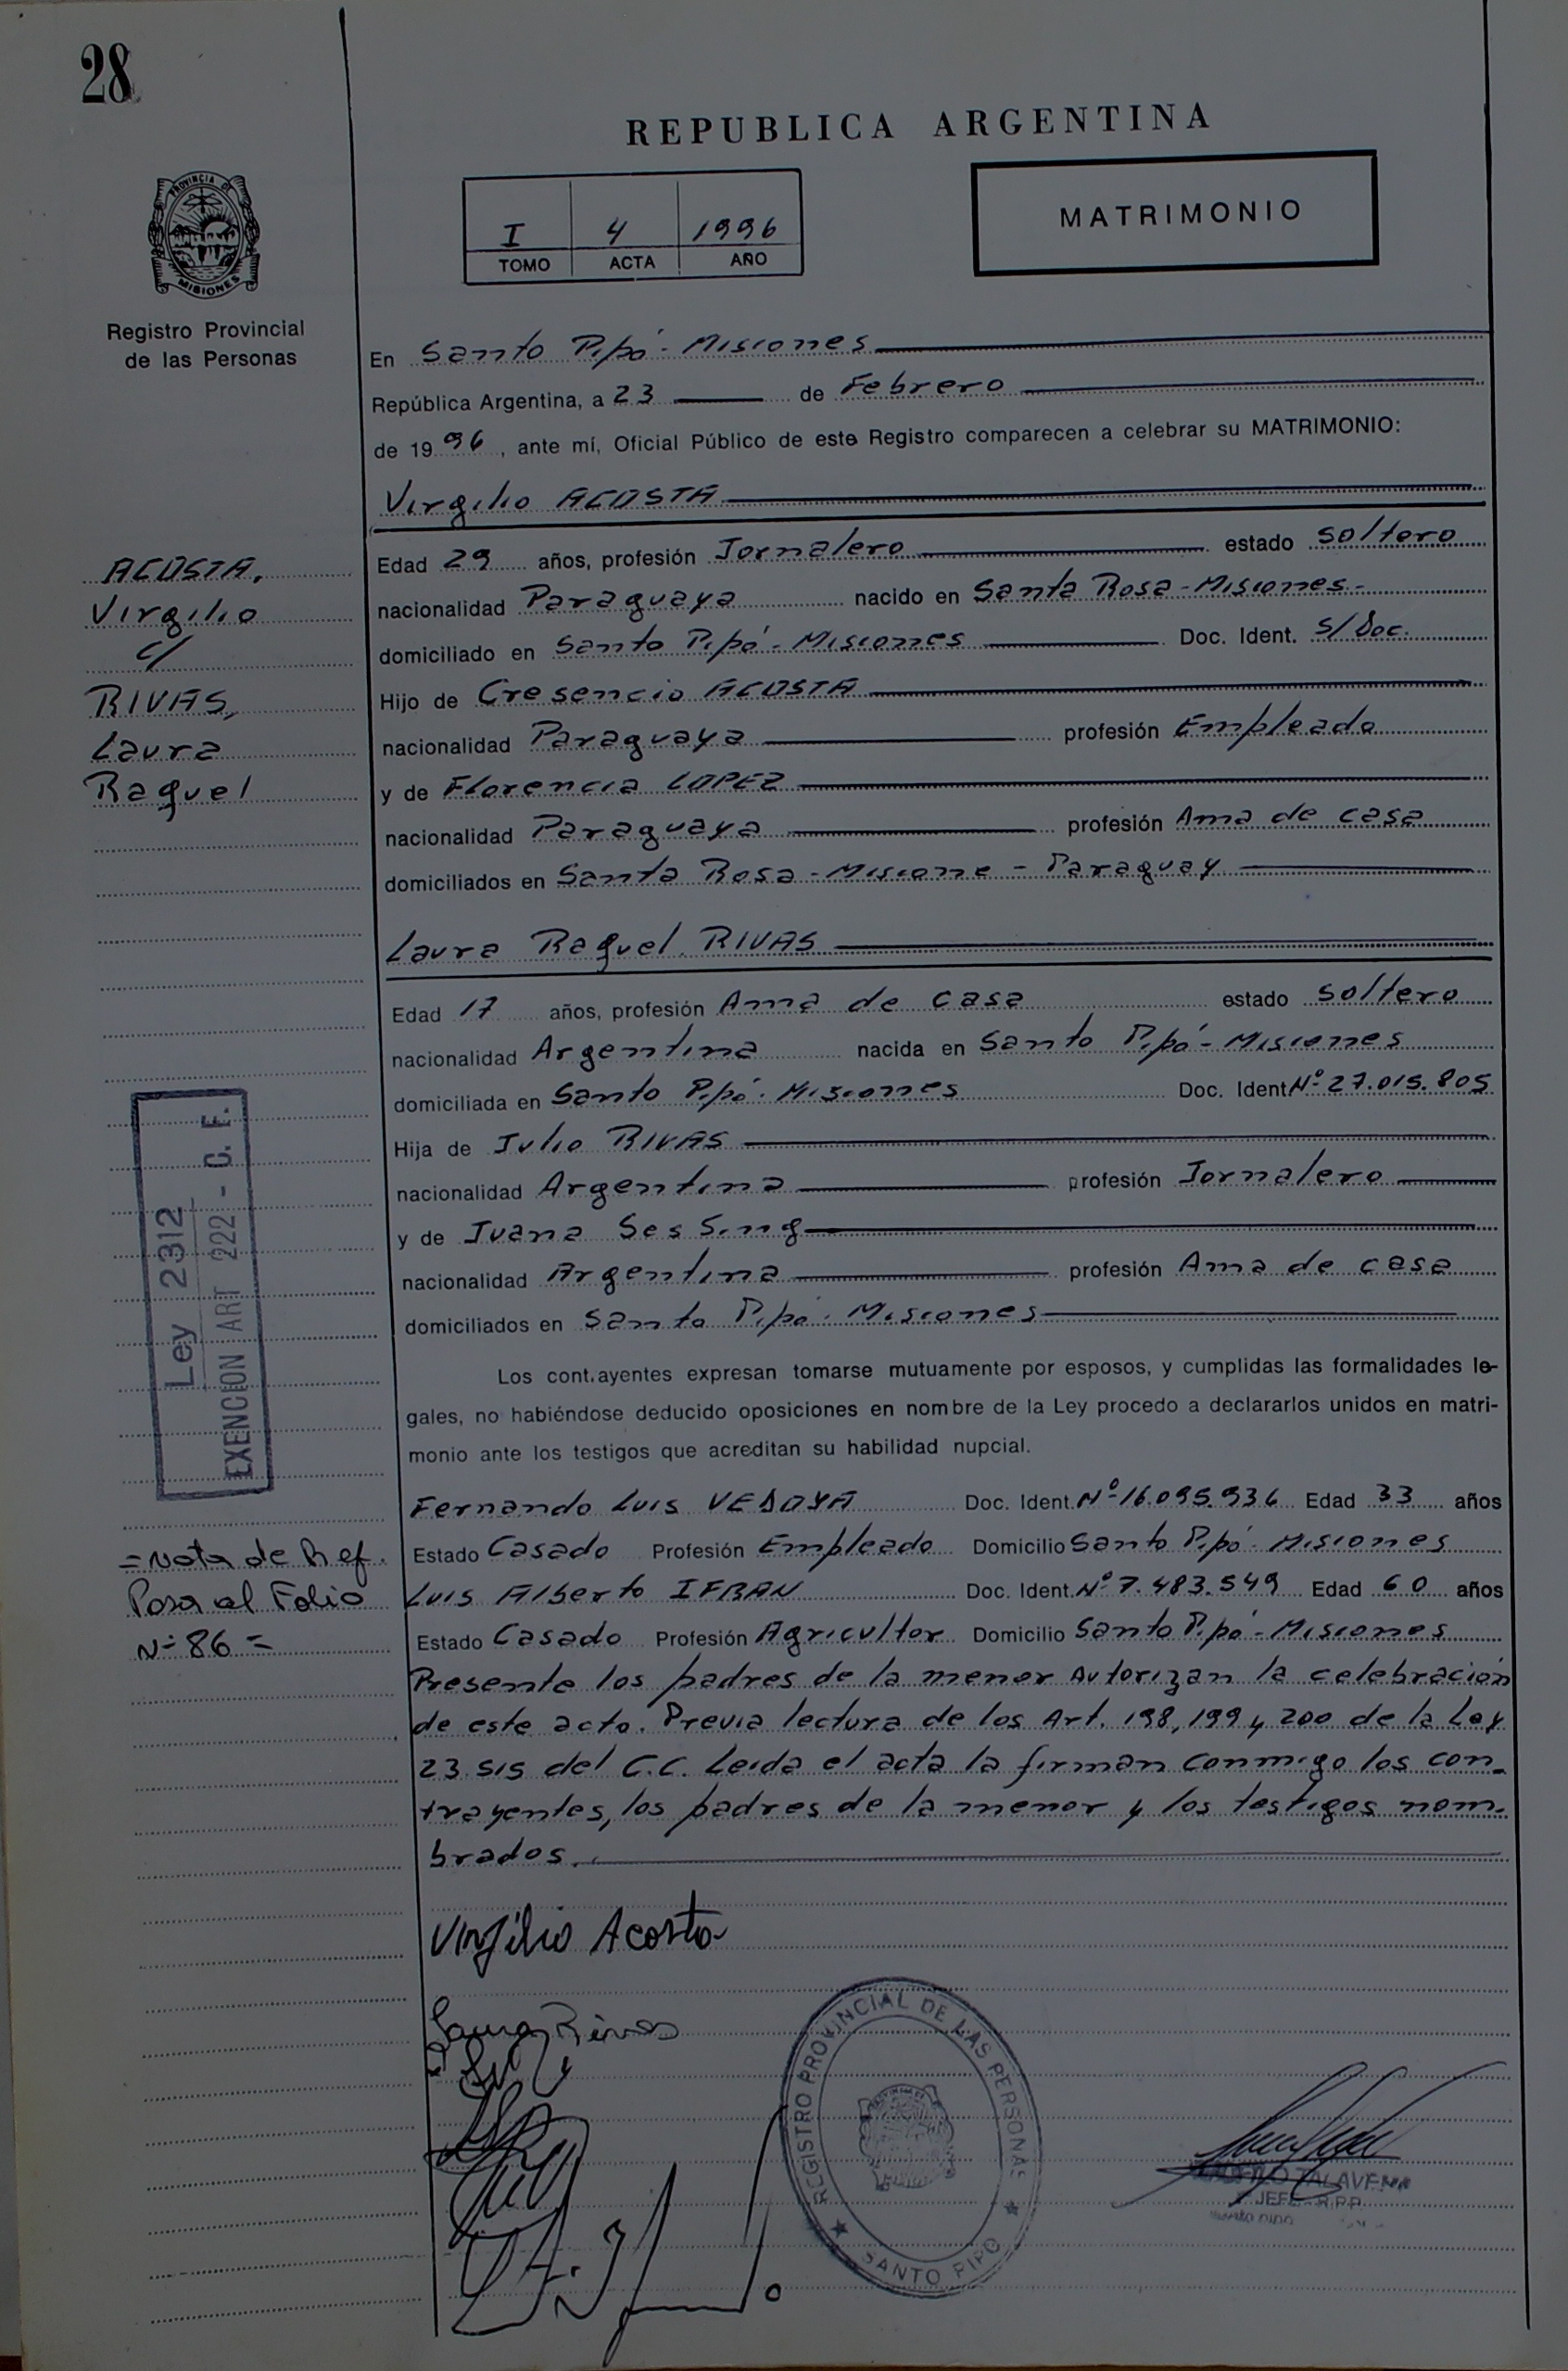 28
REPUBLICA ARGENTINA
PROVINCIA DE
MISIONES
Registro Provincial
de las Personas
I 4 1996
TOMO ACTA AÑO
MATRIMONIO
En Santo Pipó - Misiones
República Argentina, a 23 de Febrero
de 1996, ante mí, Oficial Público de este Registro comparecen a celebrar su MATRIMONIO:
Virgilio ACOSTA
ACOSTA,
Virgilio
c/
RIVAS,
Laura
Raquel
Edad 29 años, profesión Jornalero estado soltero
nacionalidad Paraguaya nacido en Santa Rosa - Misiones -
domiciliado en Santo Pipó - Misiones Doc. Ident. S/Doc.
Hijo de Cresencio ACOSTA
nacionalidad Paraguaya profesión Empleado
y de Florencia LOPEZ
nacionalidad Paraguaya profesión Ama de casa
domiciliados en Santa Rosa - Misione - Paraguay
Laura Raquel RIVAS
Edad 17 años, profesión Ama de casa estado soltero
nacionalidad Argentina nacida en Santo Pipó - Misiones
domiciliada en Santo Pipó - Misiones Doc. Ident Nº 27.015.805
Hija de Julio RIVAS
nacionalidad Argentina profesión Jornalero
y de Juana Ses Sing
nacionalidad Argentina profesión Ama de casa
domiciliados en Santo Pipó - Misiones
Ley 2312
EXENCION ART 222 - C. F.
Los contrayentes expresan tomarse mutuamente por esposos, y cumplidas las formalidades le-
gales, no habiéndose deducido oposiciones en nombre de la Ley procedo a declararlos unidos en matri-
monio ante los testigos que acreditan su habilidad nupcial.
Fernando Luis VEDOYA Doc. Ident. Nº 16.095.936 Edad 33 años
Estado Casado Profesión Empleado Domicilio Santo Pipó - Misiones
Luis Alberto IFRAN Doc. Ident. Nº 7.483.549 Edad 60 años
Estado Casado Profesión Agricultor Domicilio Santo Pipó - Misiones
= Nota de Ref.
Pasa al Folio
Nº 86 =
Presente los padres de la menor Autorizan la celebración
de este acto. Previa lectura de los Art. 198, 199 y 200 de la Ley
23.515 del C.C. Leída el acta la firman conmigo los con-
trayentes, los padres de la menor y los testigos nom-
brados.
Virgilio Acosta
Laura Rivas
REGISTRO PROVINCIAL DE LAS PERSONAS
SANTO PIPO
TALAVERA
JEFE R.P.P.